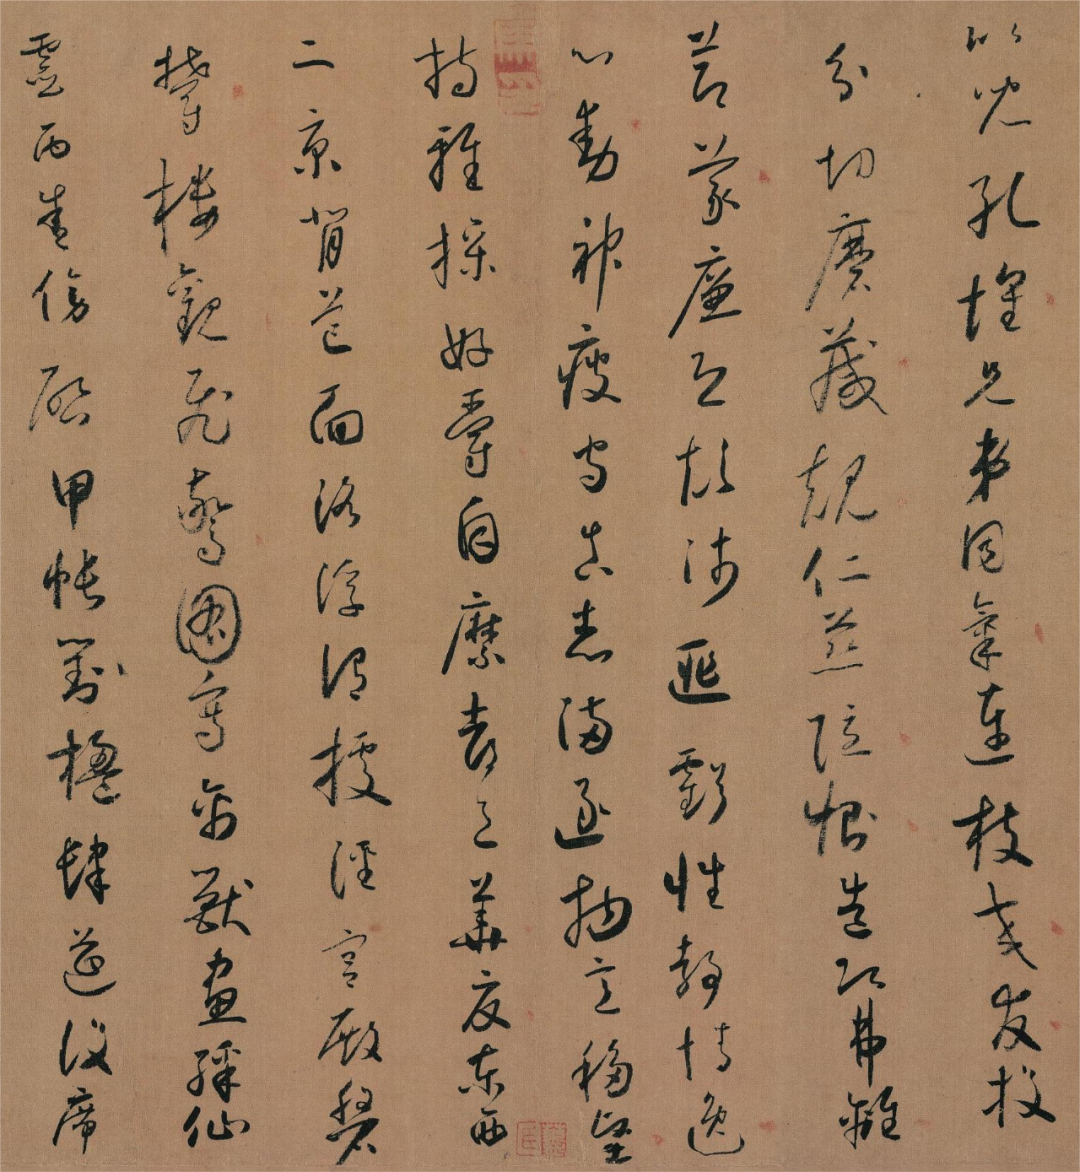 比兒孔懷兄弟同氣連枝交友投
分切磨箴規仁慈隱惻造次弗離
節義廉退顛沛匪虧性靜情逸
心動神疲守真志滿逐物意移堅
持雅操好爵自縻都邑華夏東西
二京背芒面洛浮渭據涇宮殿磐
欝樓觀飛驚圖寫禽獸畫綵仙
靈丙舍傍啟甲帳對楹肆筵設席